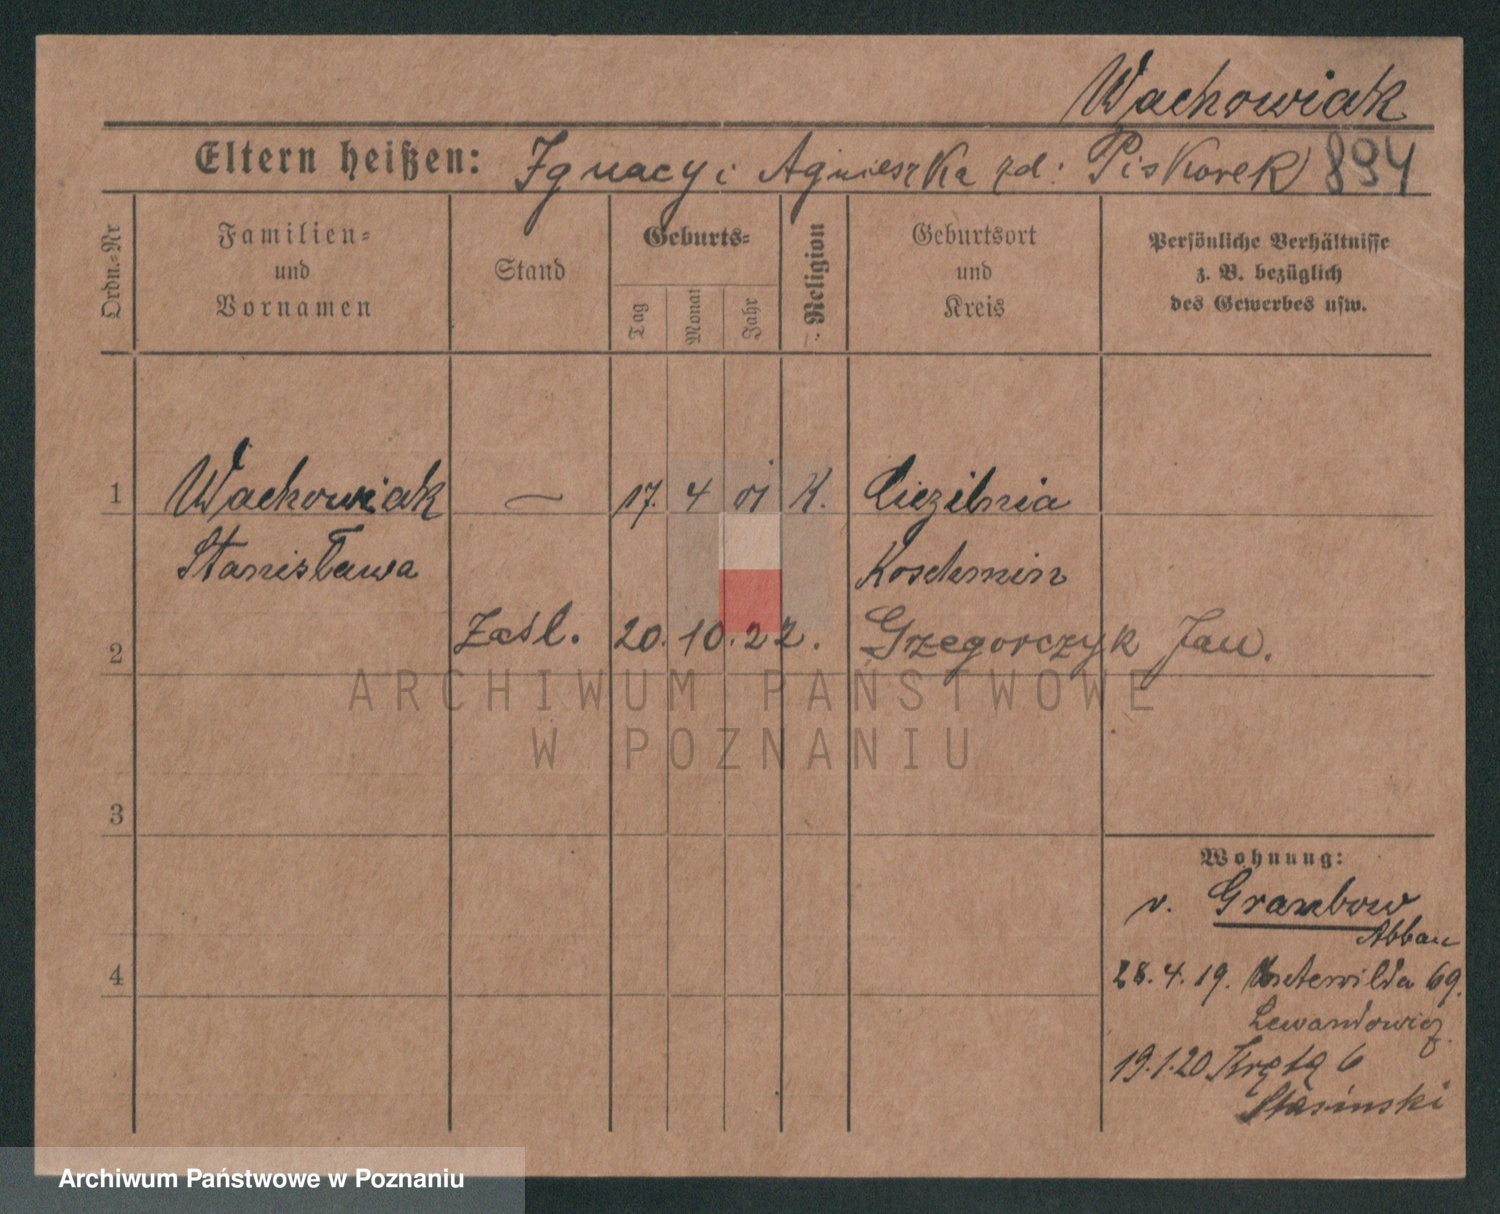 Wachowiak
Eltern heißen: Ignacy i Agnieszka zd: Piskorek 894
Ordn.-Nr
Familien-
und
Vornamen
Stand
Geburts-
Tag
Monat
Jahr
Religion
Geburtsort
und
Kreis
Persönliche Verhältnisse
z. B. bezüglich
des Gewerbes usw.
1 Wachowiak — 17. 4 01 K.
Stanisława Koschmin
2 Zaśl. 20. 10. 22. Grzegorczyk Jan.
ARCHIWUM PAŃSTWOWE
W POZNANIU
3
Wohnung:
v. Grambow
Abbau
4 28. 4. 19. 69.
Lewandowicz
19. 1. 20 Kręta 6
Stasinski
Archiwum Państwowe w Poznaniu